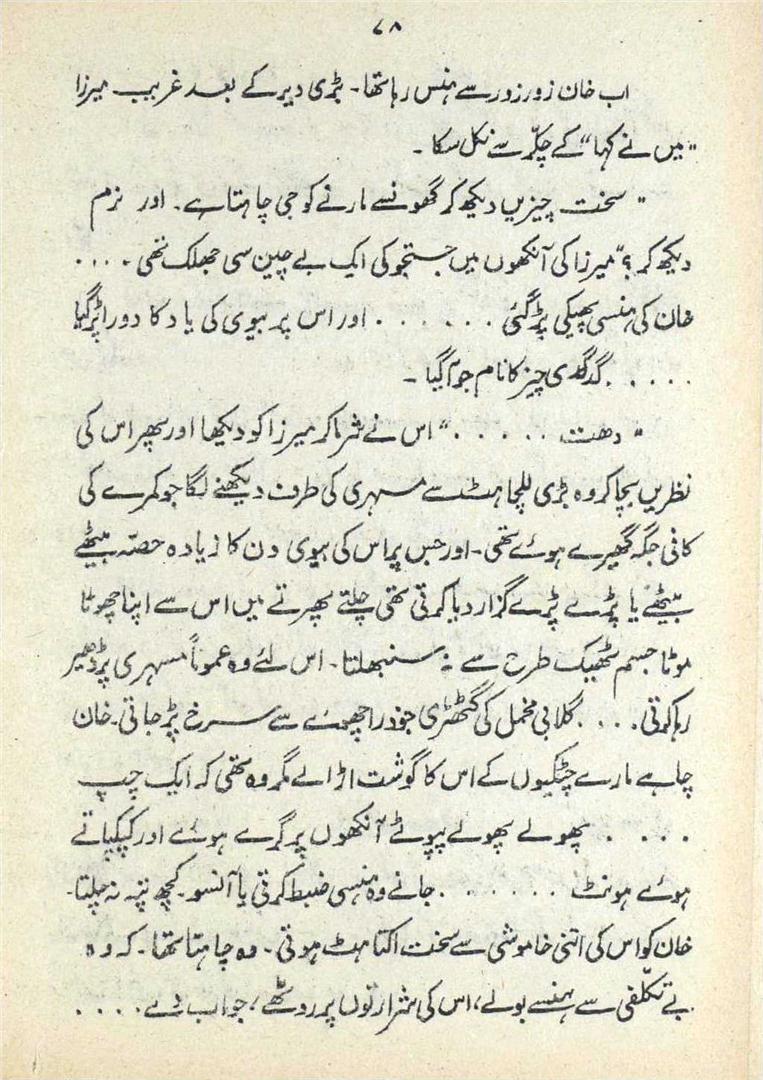 ۷۸
اب خان زور زور سے ہنس رہا تھا۔ بڑی دیر کے بعد غریب میرزا
"میں نے کہا" کے چکّر سے نکل سکا۔
"سخت چیزیں دیکھ کر گھونسے مارنے کو جی چاہتا ہے۔ اور نرم
دیکھ کر؟" میرزا کی آنکھوں میں جستجو کی ایک بے چین سی جھلک تھی۔ . . . .
خان کی ہنسی پھیکی پڑ گئی . . . . . . اور اس پر بیوی کی یاد کا دورا پڑ گیا
. . . . . گدگدی چیز کا نام جو آ گیا۔
"دھت . . . . ." اس نے شرما کر میرزا کو دیکھا اور پھر اس کی
نظریں بچا کر وہ بڑی للچاہٹ سے مسہری کی طرف دیکھنے لگا جو کمرے کی
کافی جگہ گھیرے ہوئے تھی۔ اور جس پر اس کی بیوی دن کا زیادہ حصّہ بیٹھے
بیٹھے یا پڑے پڑے گزار دیا کرتی تھی چلتے پھرتے میں اس سے اپنا چھوٹا
موٹا جسم ٹھیک طرح سے نہ سنبھلتا۔ اس لئے وہ عموماً مسہری پر ڈھیر
رہا کرتی . . . . گلابی مخمل کی گٹھڑی جو ذرا چھونے سے سرخ پڑ جاتی۔ خان
چاہے مارے چٹکیوں کے اس کا گوشت اڑا لے مگر وہ تھی کہ ایک چپ
. . . . پھولے پھولے پپوٹے آنکھوں پر گرے ہوئے اور کپکپاتے
ہوئے ہونٹ . . . . . . جانے وہ ہنسی ضبط کرتی یا آنسو۔ کچھ پتہ نہ چلتا۔
خان کو اس کی اتنی خاموشی سے سخت اکتاہٹ ہوتی۔ وہ چاہتا تھا۔ کہ وہ
بے تکلّفی سے ہنسے بولے، اس کی شرارتوں پر روٹھے، جواب دے . . . .